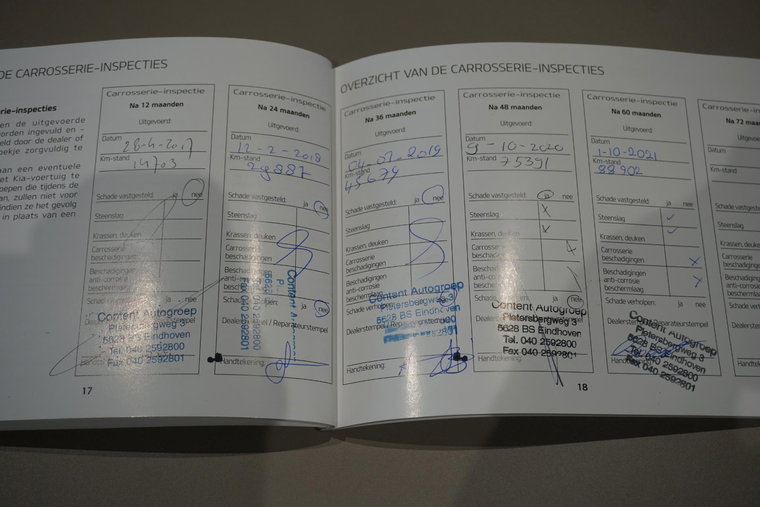 DE CARROSSERIE-INSPECTIES
rie-inspecties
en de uitgevoerde
orden ingevuld en -
eld door de dealer of
oekje zorgvuldig te
aan een eventuele
et Kia-voertuig te
oepen die tijdens de
an, zullen niet voor
indien ze het gevolg
in plaats van een
Carrosserie-inspectie
Na 12 maanden
Uitgevoerd:
Datum
28-4-2017
Km-stand
14703
Schade vastgesteld: ja nee
Steenslag
Krassen, deuken
Carrosserie
beschadigingen
Beschadigingen
anti-corrosie
beschermlaag
Content Autogroep
Pietersbergweg 3
5628 BS Eindhoven
Tel. 040 2592800
Fax 040 2592801
Handtekening:
17
Carrosserie-inspectie
Na 24 maanden
Uitgevoerd:
Datum
12-2-2018
Km-stand
Schade vastgesteld: ja nee
Steenslag
Krassen, deuken
Handtekening:
OVERZICHT VAN DE CARROSSERIE-INSPECTIES
Carrosserie-inspectie
Na 36 maanden
Uitgevoerd:
Datum
04-07-2019
Km-stand
45679
Schade vastgesteld: ja nee
Steenslag
Krassen, deuken
Carrosserie
beschadigingen
Beschadigingen
anti-corrosie
Content Autogroep
Pietersbergweg 3
5628 BS Eindhoven
Handtekening:
Carrosserie-inspectie
Na 48 maanden
Uitgevoerd:
Datum
9-10-2020
Km-stand
75391
Schade vastgesteld: ja nee
Steenslag
Krassen, deuken
Carrosserie
beschadigingen
Beschadigingen
anti-corrosie
beschermlaag
Content Autogroep
Pietersbergweg 3
5628 BS Eindhoven
Tel. 040 2592800
Fax 040 2592801
Handtekening:
18
Carrosserie-inspectie
Na 60 maanden
Uitgevoerd:
Datum
1-10-2021
Km-stand
88902
Schade vastgesteld: ja nee
Steenslag
Krassen, deuken
Carrosserie
beschadigingen
Beschadigingen
anti-corrosie
beschermlaag
Schade verholpen: ja nee
Content Autogroep
Pietersbergweg 3
5628 BS Eindhoven
Tel. 040 2592800
Fax 040 2592801
Handtekening:
Carrosserie-
Na 72 maan
Uitgevoe
Datum
Km-stand
Schade vastgesteld:
Steenslag
Krassen, deuken
Carrosserie
beschadigingen
Beschadigingen
anti-corrosie
beschermlaag
Schade verholpen:
Handtekening: